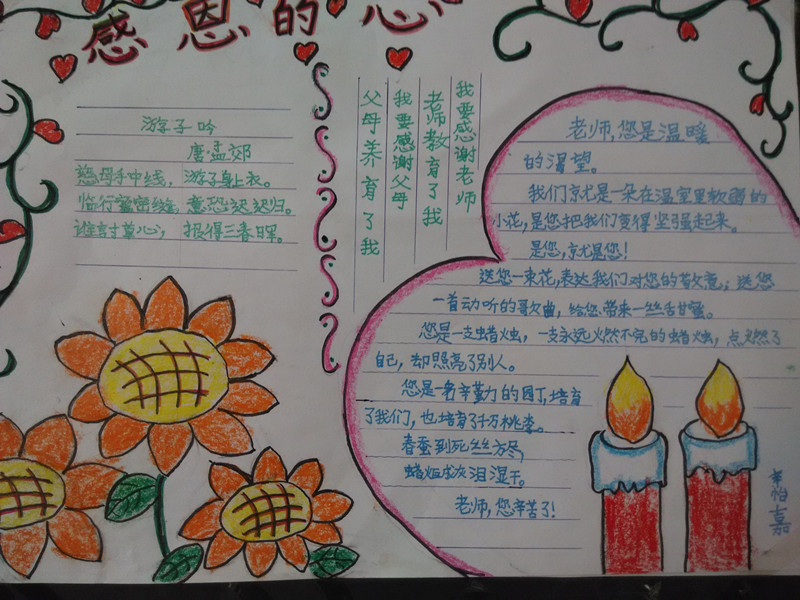 感恩的心
游子吟
唐孟郊
慈母手中线，游子身上衣。
临行密密缝，意恐迟迟归。
谁討草心，报得三春晖。
我要感谢老师
老师教育了我
我要感谢父母
父母养育了我
老师，您是温暖
的渴望。
我们就是一朵在温室里软弱的
小花，是您把我们变得坚强起来。
是您，就是您！
送您一束花，表达我们对您的敬意；送您
一首动听的歌曲，给您带来一丝舌甘蜜。
您是一支蜡烛，一支永远燃不完的蜡烛，点燃了
自己，却照亮了别人。
您是一身辛勤的园丁，培育
了我们，也培育了千万桃李。
春蚕到死丝方尽，
蜡炬成灰泪湿干。
老师，您辛苦了！
辛怡嘉